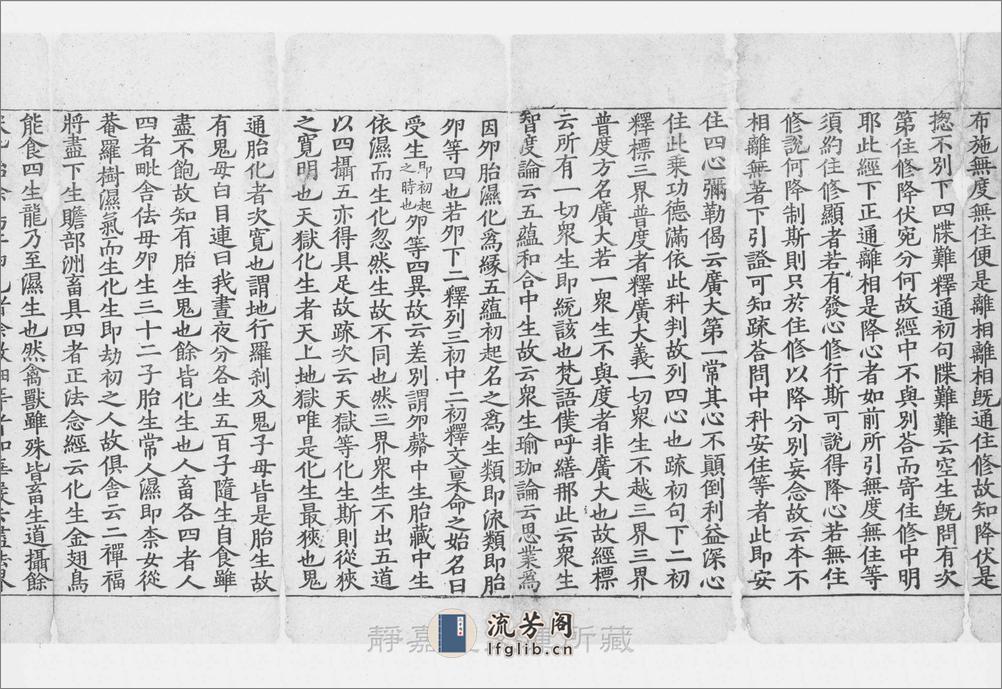 布施無度無住便是離相離相旣通住修故知降伏是
揔不別下四牒難釋通初句牒難難云空生旣問有次
第住修降伏宛分何故經中不與別荅而寄住修中明
耶此經下正通離相是降心者如前所引無度無住等
須約住修顯者若有發心修行斯可說得降心若無住
修說何降制斯則只於住修以降分別妄念故云本不
相離無著下引證可知疎荅問中科安住等者此即安
住四心彌勒偈云廣大第一常其心不顛倒利益深心
住此乗功德滿依此科判故列四心也疎初句下二初
釋標三界普度者釋廣大義一切衆生不越三界三界
普度方名廣大若一衆生不與度者非廣大也故經標
云所有一切衆生即統該也梵語僕呼繕那此云衆生
智度論云五蘊和合中生故云衆生瑜珈論云思業爲
因夘胎濕化爲縁五蘊初起名之爲生類即流類即胎
夘等四也若夘下二釋列三初中二初釋文禀命之始名曰
受生即初起之時也夘等四異故云差別謂夘㲉中生胎藏中生
依濕而生化忽然生故不同也然三界衆生不出五道
以四攝五亦得具足故疎次云天獄等化生斯則從狹
之寛明也天獄化生者天上地獄唯是化生最狹也鬼
通胎化者次寛也謂地行羅刹及鬼子母皆是胎生故
有鬼母白目連曰我晝夜分各生五百子隨生自食雖
盡不飽故知有胎生鬼也餘皆化生也人畜各四者人
四者毗舍佉母夘生三十二子胎生常人濕即柰女從
菴羅樹濕氣而生化生即劫初之人故俱舍云二禪福
將盡下生贍部洲畜具四者正法念經云化生金翅鳥
能食四生龍乃至濕生也然禽獸雖殊皆畜生道攝餘
靜嘉
所藏
流芳阁
lfglib.cn